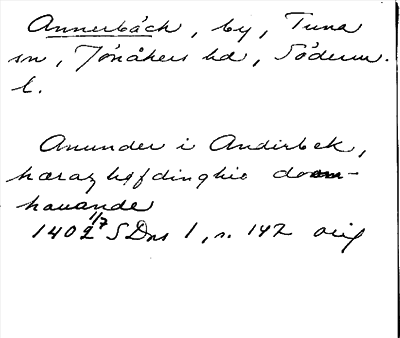 Annerbäck, by, Tuna
sn, Jönåkers hd, Söderm.
l.
Anunder i Andirbek,
haraz høfdinghie dom-
hauande
1402 1/7 SDns 1, s. 142 orig